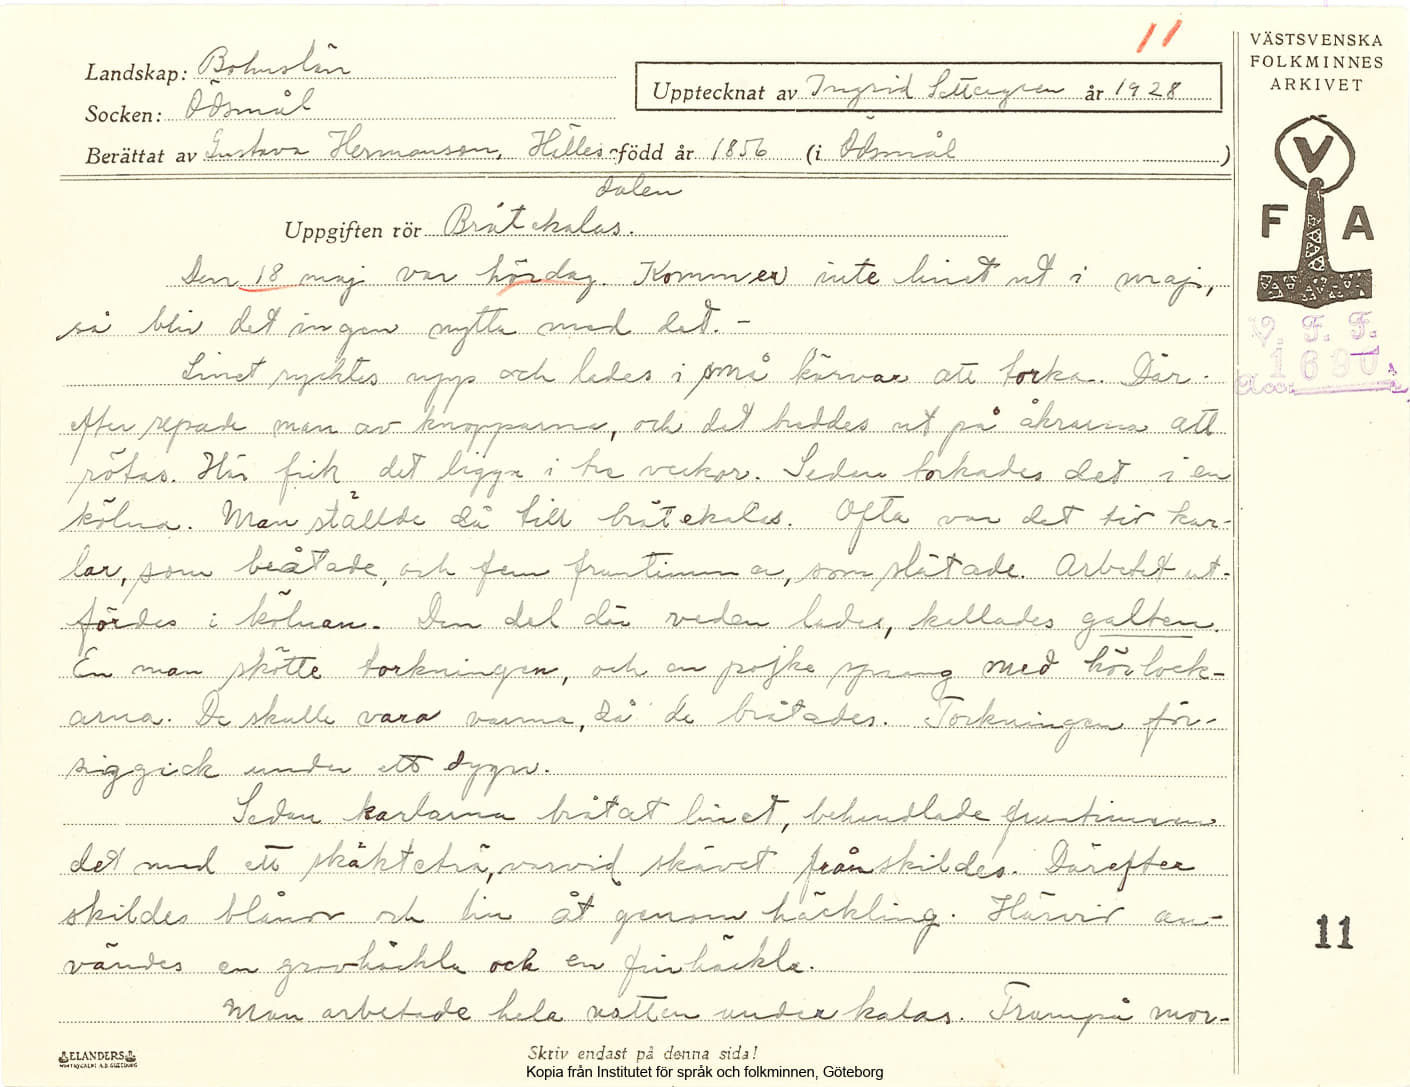 11
Landskap: Bohuslän
Socken: Ödsmål
Upptecknat av Ingrid Settergren år 1928
Berättat av Gustava Hermanson, Hilles- född år 1856 (i Ödsmål )
dalen
Uppgiften rör Bråtekalas.
Den 18 maj var hördag. Kommer inte linet ut i maj,
så bliv det ingen nytta med det. -
Linet rycktes upp och lades i små kärvar att torka. Där-
efter repade man av knopparna, och det breddes ut på åkrarna att
rötas. Här fick det ligga i tre veckor. Sedan torkades det i en
kölna. Man ställde då till bråtekalas. Ofta var det tio kar-
lar, som bråtade, och fem fruntimmer, som slätade. Arbetet ut-
fördes i kölnan. Den del där veden lades, kallades galten.
En man skötte torkningen, och en pojke sprang med hörlock-
arna. De skulle vara varma, då de bråtades. Torkningen för-
siggick under ett dygn.
Sedan karlarna bråtat linet, behandlade fruntimren
det med ett skäktträ, varvid skävet frånskildes. Därefter
skildes blånor och lin åt genom häckling. Härvid an-
vändes en grovhäckla och en finhäckla.
Man arbetade hela natten under kalas. Frampå mor-
VÄSTSVENSKA
FOLKMINNES
ARKIVET
V
F A
V. F. F.
1690
Acc.
11
ELANDERS
Skriv endast på denna sida!
Kopia från Institutet för språk och folkminnen, Göteborg